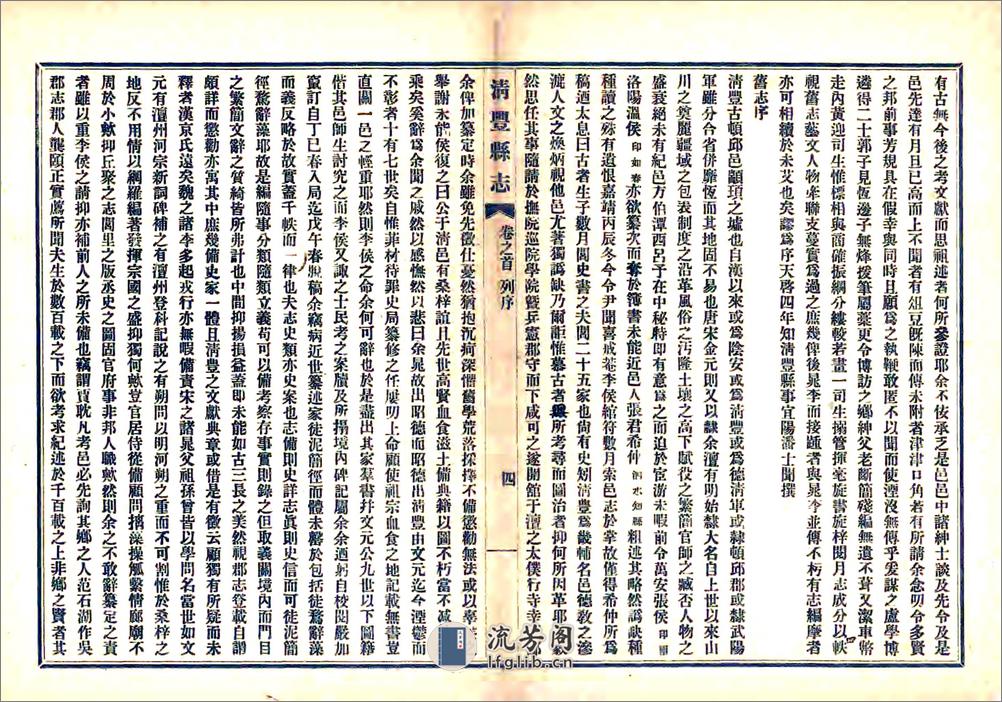 有古無今後之考文獻而思祖述者何所參證耶余不佞承乏是邑邑中諸紳士談及先令及是
邑先達有月且已高而上不聞者有俎豆旣陳而傳未附者津津口角若有所請余念明令多賢
之邦前事芳規具在假幸與同時且願爲之執鞭敢匿不以聞而使湮沒無傳乎爰謀之盧學博
遴得二十郭子見恆邊子無烽援筆屬藁更令博訪之鄉紳父老斷簡殘編無遺不葺又潔車幣
走內黃迎司生惟標相與商確振綱分縷較若畫一司生搦管揮毫旋書旋梓閱月志成分以帙
視舊志藝文人物牽聯支蔓實爲過之庶幾俾後晁李而接踵者與晁李並傳不朽有志編摩者
亦可相續於未艾也矣謬爲序天啓四年知淸豐縣事宜陽潘士聞撰
舊志序
淸豐古頓邱邑顓頊之墟也自漢以來或爲陰安或爲淸豐或爲德淸軍或隸頓邱郡或隸武陽
軍雖分合省併靡恆而其地固不易也唐宋金元則又以隸余澶有明始隸大名自上世以來山
川之奠麗疆域之包裹制度之沿革風俗之汚隆土壤之高下賦役之繁簡官師之臧否人物之
盛衰絕未有紀邑方伯譚西呂予在中秘時卽有意爲之而迫於宦游未暇前令萬安張侯印
洛陽溫侯印如春亦欲纂次而奪於簿書未能近邑人張君希仲泗水知縣粗述其略然譌缺種
種讀之殊有遺恨嘉靖丙辰冬今令尹聞喜戒菴李侯綰符數月索邑志於掌故僅得希仲所爲
稿迺太息曰古者生子數月閭史書之夫閭二十五家也尙有史矧淸豐爲畿輔名邑德敎之滲
漉人文之煥炳視他邑尤著獨譌缺乃爾詎惟慕古者無所考尋而圖治者抑何所因革耶
然思任其事隨請於撫院巡院學院曁兵憲郡守而下咸可之遂開館于澶之太僕行寺幸
淸豐縣志 卷之首 列序 四
余俾加纂定時余雖免先徵仕憂然猶抱沉疴深懵舊學荒落採擇不備懲勸無法或以辜
舉謝未能侯復之曰公于淸邑有桑梓誼且先世高賢血食滋土備典籍以圖不朽當不減
乘矣奚辭之之余聞之咸然以感憮然以悲曰余晁故出昭德而昭德出淸豐由文元迄今湮鬱而
不彰者十有七世矣自惟菲材待罪史局纂修之任屢明上命顧使祖宗血食之地記載無書豈
直關一邑之輕重耶然則李侯之命余何可辭也於是盡出其家羣書幷文元公九世以下圖籍
偕其邑師生討究之而李侯又諏之士民考之案牘及所搨境內碑記屬余余迺躬自校閱嚴加
竄訂自丁巳春入局迄戊午春脫稿余竊病近世纂述家徒泥簡徑而體未醫於包括徒騖辭藻
而義反略於故實蓋千帙而一律也夫志史類亦史案也志備則史詳志眞則史信而可徒泥簡
徑驚辭藻耶故是編隨事分類隨類立義苟可以備考察存事實則錄之但取義關境內而門目
之繁簡文辭之質綺皆所弗計也中間抑揚損益蓋卽未能如古三長之美然視郡志登載自謂
頗詳而懲勸亦寓其中庶幾備史家一體且淸豐之文獻典章或借是有徵云顧獨有所疑而未
釋者漢京氏遠矣魏之諸李多起戎行亦無暇備責宋之諸晁父祖孫曾皆以學問名當世如文
元有澶州河宗新詞碑補之有澶州登科記說之有朔問以明河朔之重而不可割惟於桑梓之
地反不用情以網羅編著發揮宗國之盛抑獨何歟豈官居侍從備顧問摛藻操觚繫情廊廟不
周於小歟抑丘聚之志閭里之版丞史之圖固官府事非邦人職歟然則余之不敢辭纂定之責
者雖以重李侯之請抑亦補前人之所未備也竊謂賈耽凡考邑必先詢其鄉之人范石湖作吳
郡志郡人龔頤正實薦所聞夫生於數百載之下而欲考求紀述於千百載之上非鄉之賢者其
流芳阁
lfglib.cn